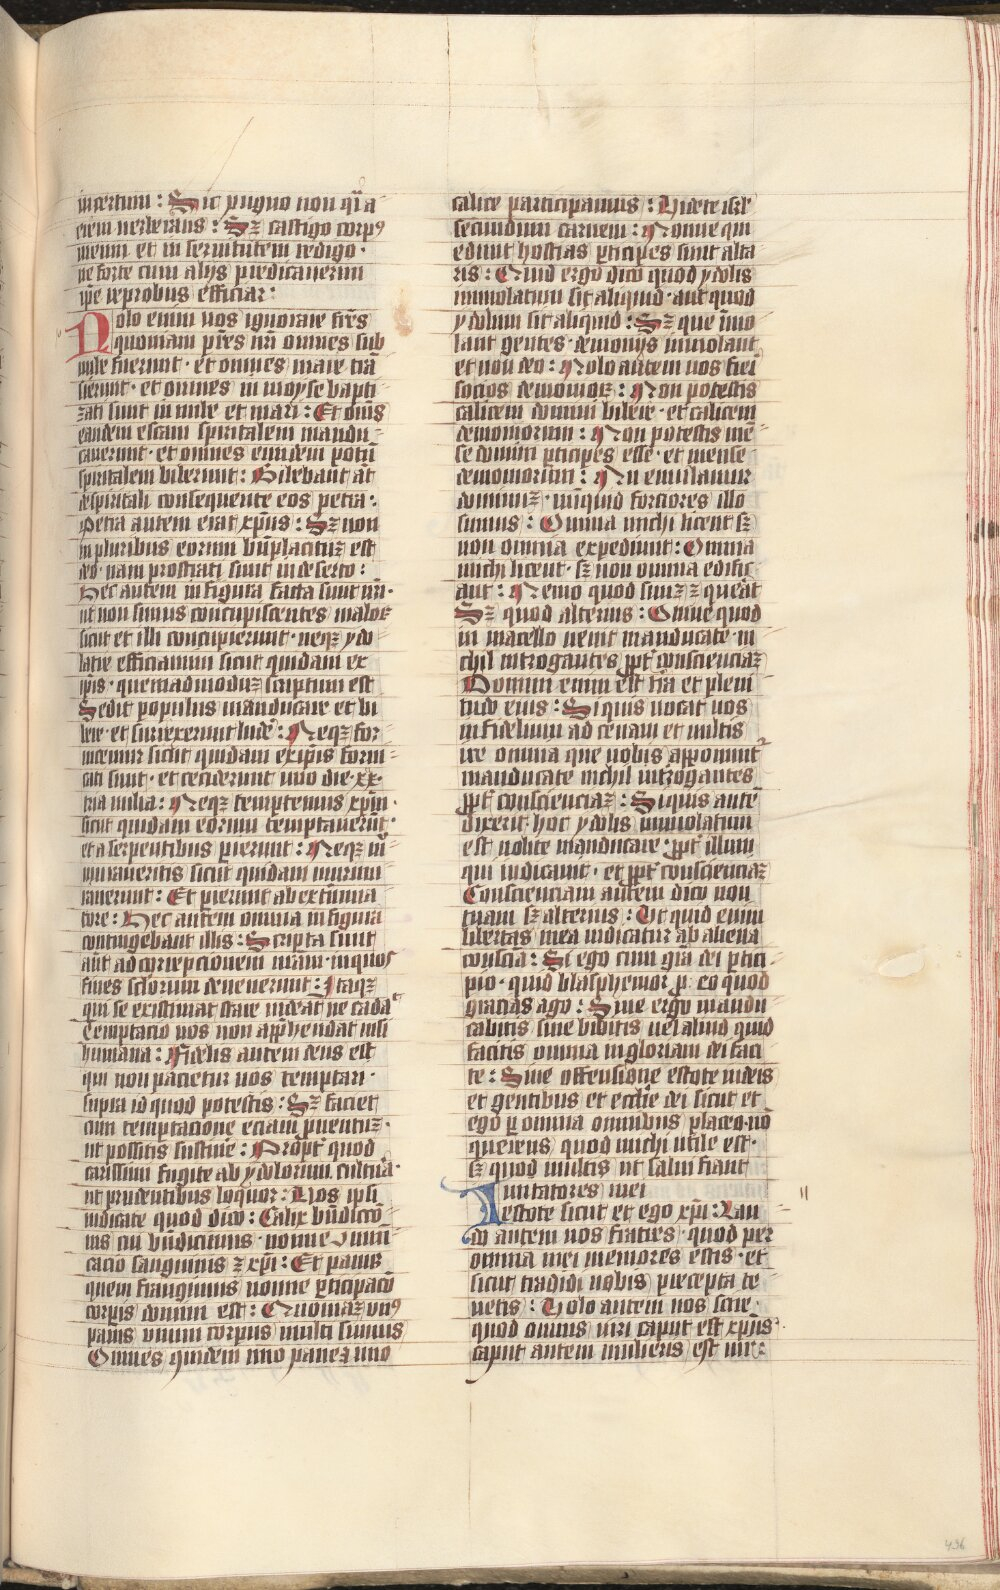 incertum : Sic pugno non q̃i a
erem verberans : Sꝫ castigo corpꝰ
meum et in servitutem redigo ·
ne forte cum alijs predicauerim
ip̃e reprobus efficiar :
Nolo enim vos ignorare frẽs
quoniam pr̃es nr̃i omnes sub
nube fuerunt · et omnes mare trã
sierunt · et omnes in moyse bapti
zati sunt in nube et mari : Et om̃s
eandem escam spiritalem mandu
cauerunt · et omnes eundem potũ
spiritalem biberunt : Bibebant aũt
de spiritali consequente eos petra :
Petra autem erat xp̃us : Sꝫ non
in pluribus eorum bñplacituꝫ est
deo · nam prostrati sunt in deserto :
Hec autem in figura facta sunt nr̃i ·
ut non simus concupiscentes maloꝝ
sicut et illi concupierunt · neqꝫ ydo
latre efficiamini sicut quidam ex
ip̃is · quemadmoduꝫ scriptum est
Sedit populus manducare et bi
bere · et surrexerunt lude᷒ : Neqꝫ for
nicemur sicut quidam ex ip̃is forni
cati sunt · et ceciderunt uno die · xx ·
tria milia : Neqꝫ temptemus xp̃m ·
sicut quidam eorum temptauerũt ·
et a serpentibus perierunt : Neqꝫ m̃
muraueritis sicut quidam murmu
rauerunt : Et perierunt ab extermina
tore : Hec autem omnia in figura
contingebant illis : Scripta sunt
aũt ad correpcionem nr̃am · in quos
fines sclorum deuenerunt : Itaqꝫ
qui se existimat stare videat ne cadat
Temptacio vos non app̃hendat nisi
humana : Fidelis autem deus est
qui non pacietur vos temptari ·
supra id quod potestis : Sꝫ faciet
cum temptacione eciam prouentuꝫ ·
ut possitis sustinẽ : Propt̃ quod
carissimi fugite ab ydolorum cultura ·
ut prudentibus loquor : Vos ipsi
iudicate quod dico : Calix bñdictõ
nis cui bñdicimus · nonne cõmuni
cacio sanguinis ꝫ xp̃i : Et panis
quem frangimus nonne ꝑticipacõ
corpis domini est : Quoniaꝫ vnꝰ
panis vnum corpus multi sumus
Omnes quidem uno pane ⁊ uno
calice participamus : Videte isrl̃
secundum carnem : Nonne qui
edunt hostias ꝑticipes sunt alta
ris : Quid ergo dico quod ydolis
immolatum sit aliquid · aut quod
ydolum sit aliquid : Sꝫ que ĩmo
lant gentes · demonijs immolant
et non deo : Nolo autem vos fieri
socios demonioꝝ : Non potestis
calicem domini bibere · et calicem
demoniorum : Non potestis mẽ
se domini ꝑticipes esse · et mense
demoniorum : An emulamur
dominuꝫ · nunquid forciores illo
sumus : Omnia michi licent sꝫ
non omnia expediunt : Omnia
michi licent · sꝫ non omnia edific
ant : Nemo quod suuꝫ ꝫ querat
Sꝫ quod alterius : Omne quod
in macello venit manducate · ni
chil int̃rogantes ꝓpt̃ conscienciaꝫ
Domini enim est tr̃a et pleni
tudo eius : Si quis vocat vos
infidelium ad cenam et vultis
ire omnia que vobis apponuntr
manducate nichil int̃rogantes
ꝓpt̃ conscienciaꝫ : Si quis autẽ
dixerit · hoc ydolis immolatum
est nolite manducare · ꝓpt̃ illum
qui indicauit · et ꝓpt̃ conscienciaꝫ
Conscienciam autem dico non
tuam sꝫ alterius : Ut quid enim
libertas mea iudicatur ab aliena
consciã : Si ego cum grã dei ꝑtici
pio · quid blasphemor ꝓ eo quod
gracias ago : Siue ergo mandu
catis siue bibitis uel aliud quid
facitis omnia in gloriam dei faci
te : Sine offensione estote iudeis
et gentibus et ecclie dei sicut et
ego ꝑ omnia omnibus placeo · nõ
querens quod michi utile est ·
sꝫ quod multis ut salui fiant
Imitatores mei
estote sicut et ego xp̃i : Lau
do autem vos fratres · quod per
omnia mei memores estis · et
sicut tradidi vobis precepta te
netis : Volo autem vos scire
quod omnis viri caput est xp̃us ·
caput autem mulieris est vir :
436